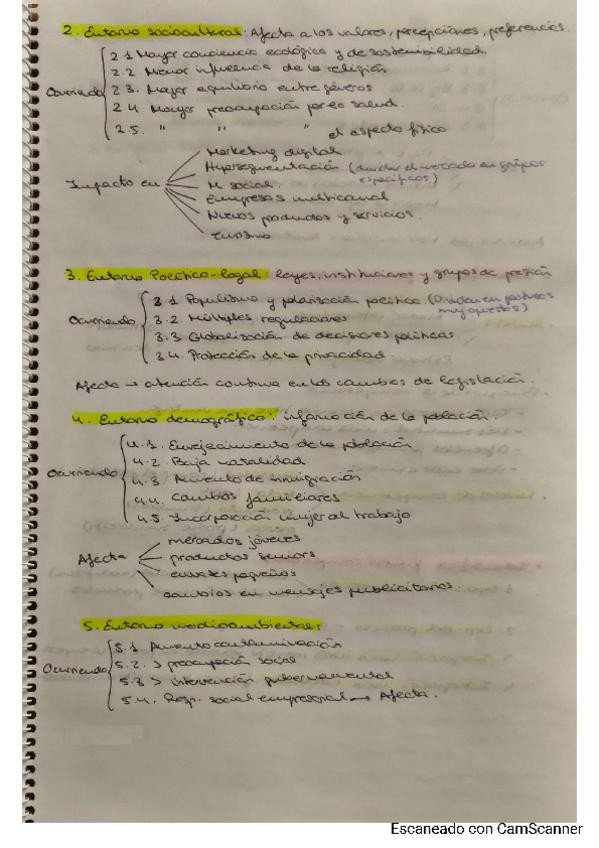 2. Entorno sociocultural: Afecta a los valores, percepciones, preferencias.
2.1 Mayor conciencia ecológica y de sostenibilidad.
2.2 Menor influencia de la religión
Ocurriendo 2.3. Mayor equilibrio entre géneros
2.4. Mayor preocupación por la salud.
2.5. " " " el aspecto físico
Marketing digital
Hipersegmentación (dividir el mercado en grupos
específicos)
Impacto en M. social.
Empresas multicanal
Nuevos productos y servicios.
Turismo
3. Entorno Político-legal: leyes, instituciones y grupos de presión
3.1 Populismo y polarización política (Dividen en posturas
muy opuestas)
Ocurriendo 3.2 Múltiples regulaciones
3.3 Globalización de decisiones políticas
3.4. Protección de la privacidad
Afecta → atención continua en los cambios de legislación.
4. Entorno demográfico: información de la población.
4.1. Envejecimiento de la población
4.2. Baja natalidad
Ocurriendo 4.3 Aumento de inmigración
4.4. Cambios familiares
4.5. Incorporación mujer al trabajo
mercados jóvenes
Afecta productos seniors
envases pequeños
cambios en mensajes publicitarios.
5. Entorno medioambiental:
5.1. Aumento contaminación
Ocurriendo 5.2. > preocupación social
5.3 > intervención gubernamental
5.4. Resp. social empresarial → Afecta.
Escaneado con CamScanner